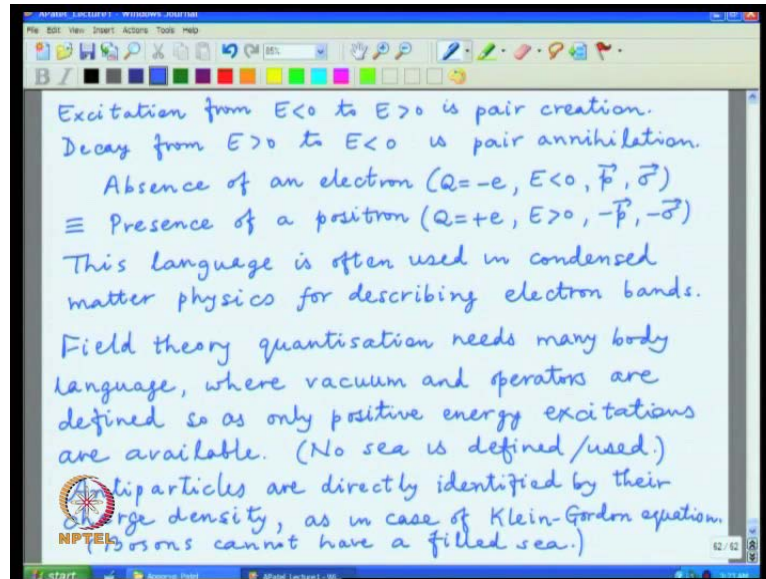 APatel_Lecture1 - Windows Journal
File Edit View Insert Actions Tools Help
85%
B I
Excitation from E<0 to E>0 is pair creation.
Decay from E>0 to E<0 is pair annihilation.
Absence of an electron (Q=-e, E<0, p⃗, σ⃗)
≡ Presence of a positron (Q=+e, E>0, -p⃗, -σ⃗)
This language is often used in condensed
matter physics for describing electron bands.
Field theory quantisation needs many body
language, where vacuum and operators are
defined so as only positive energy excitations
are available. (No sea is defined/used.)
Antiparticles are directly identified by their
charge density, as in case of Klein-Gordon equation.
(Bosons cannot have a filled sea.)
NPTEL
62/62
start